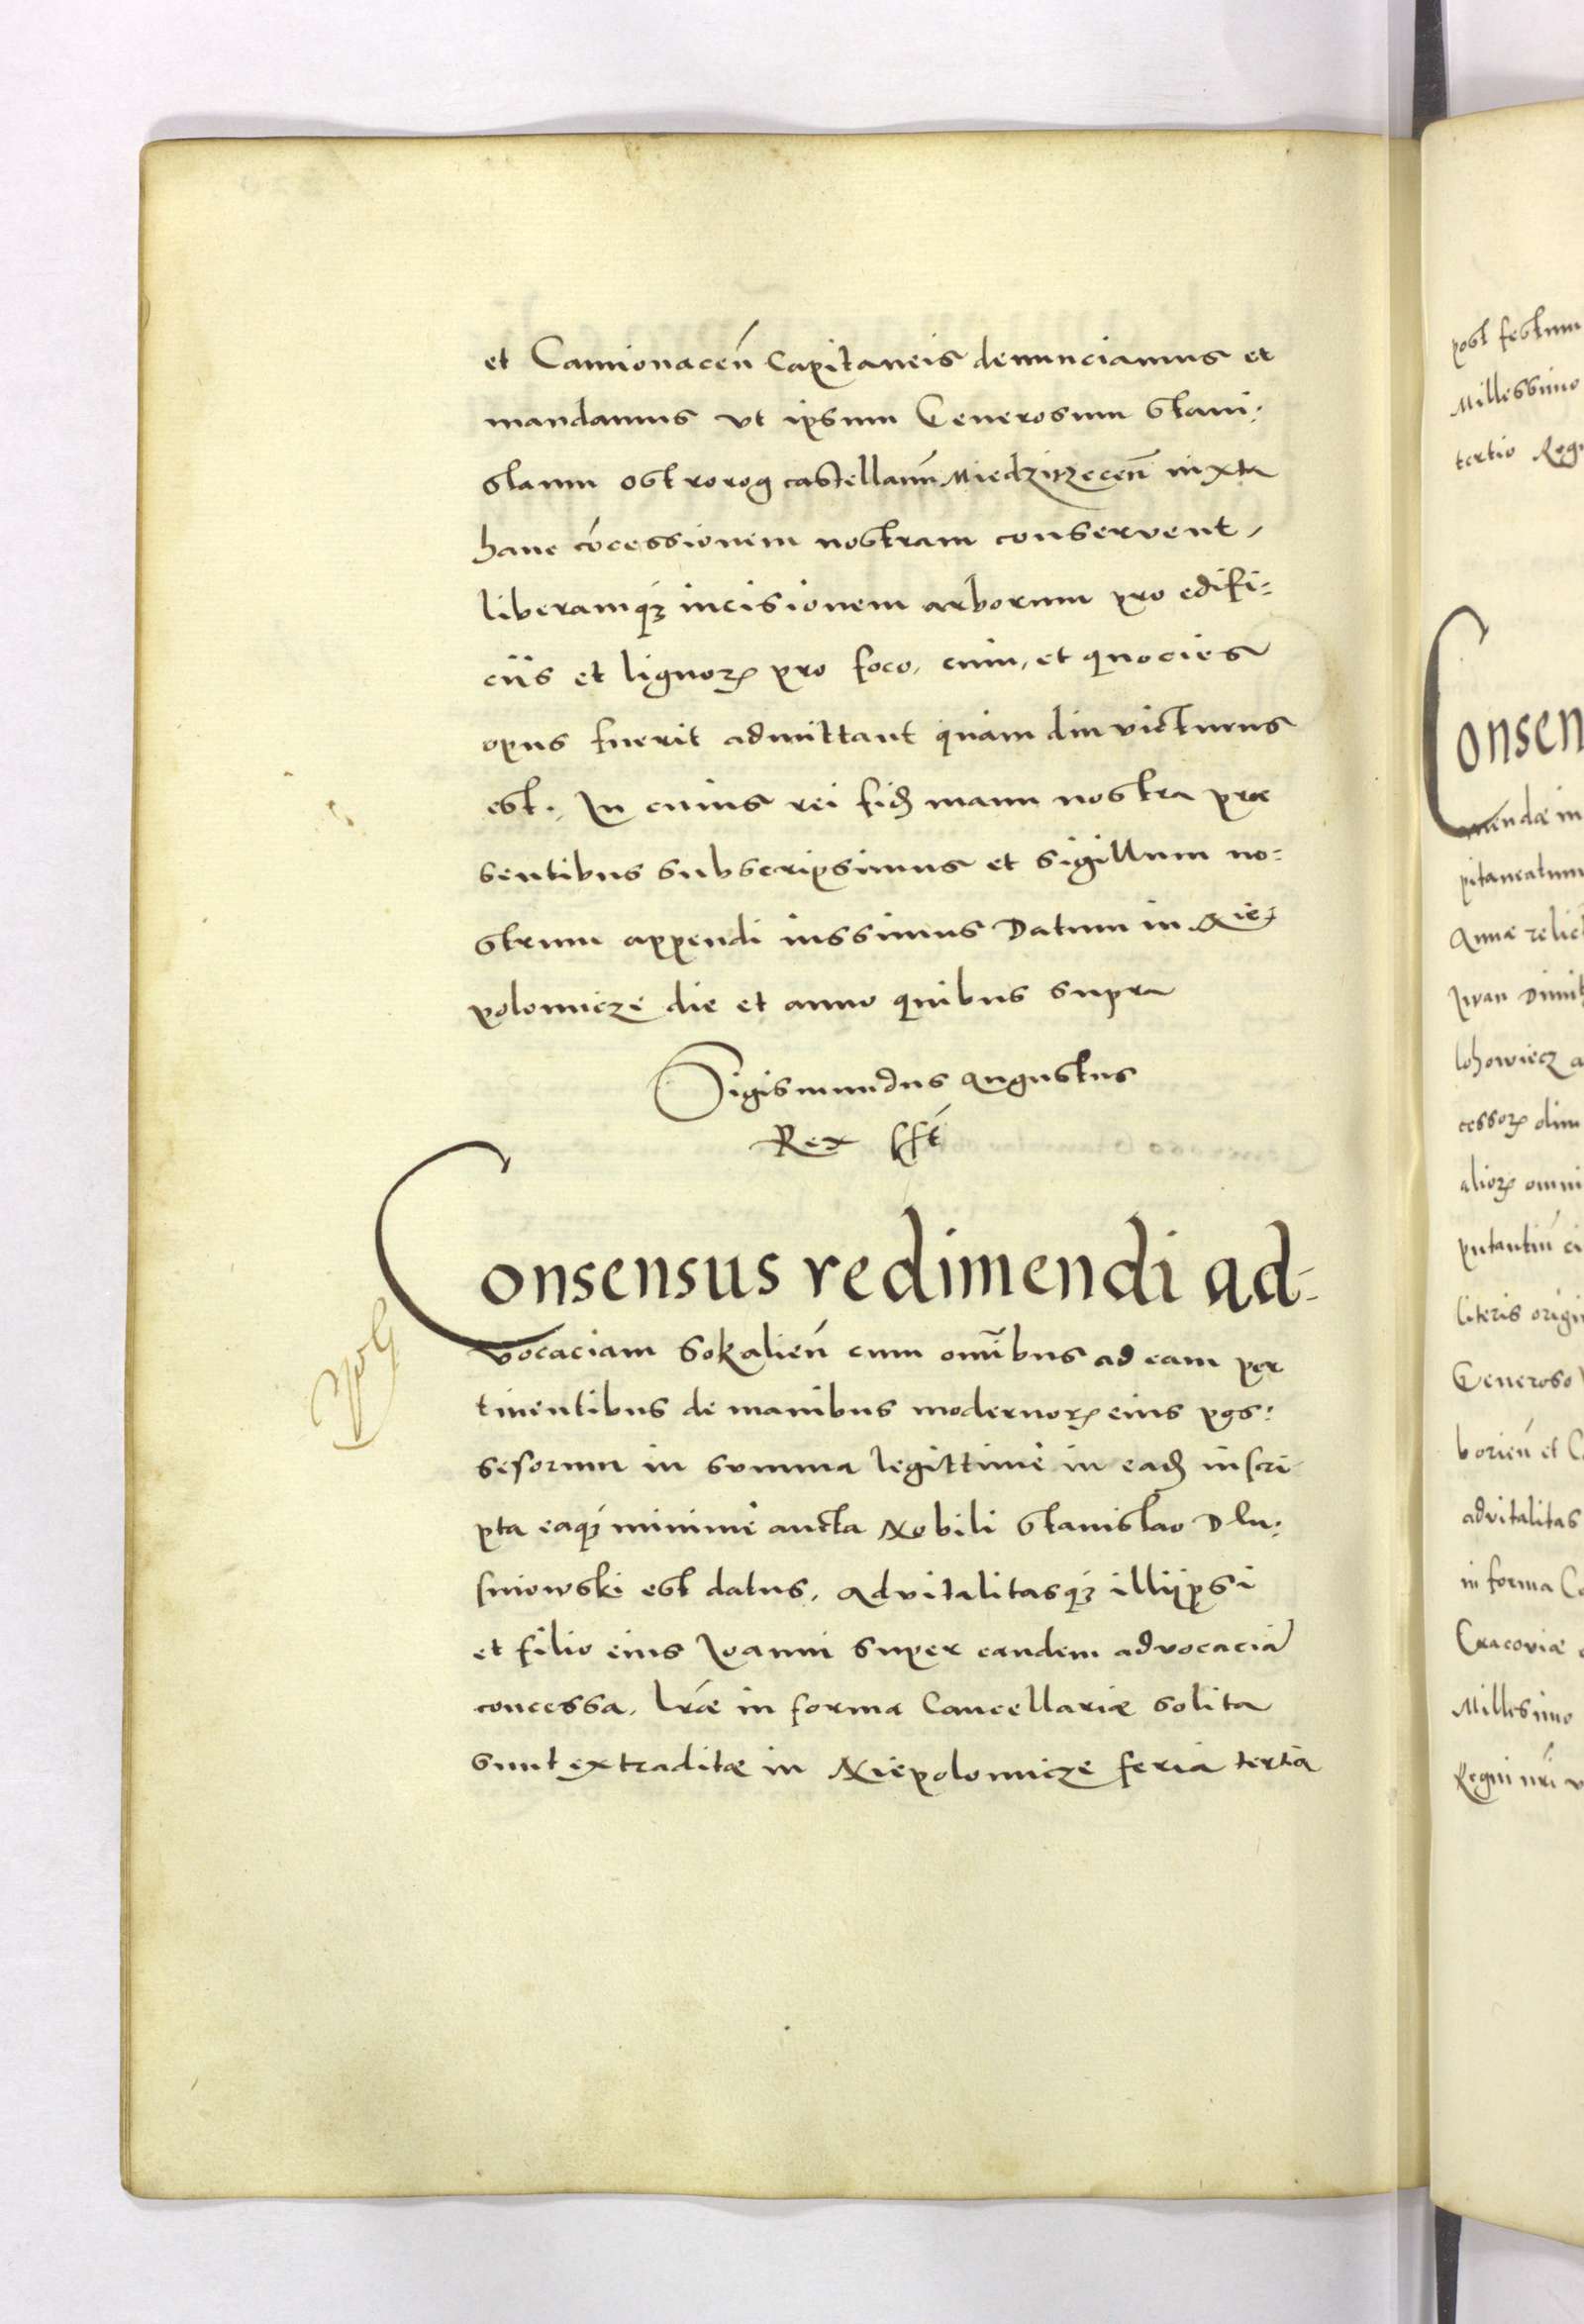 et Camionaceń Capitaneis denunciamus et
mandamus vt ipsum Generosum Stani:
slaum Ostrorog castellanũ Miedzirzeceñ iuxta
hanc cõcessionem nostram conservent,
liberamq́ʒ incisionem arborum pro edifi:
ciis et lignoꝝ pro foco, cum, et quocies
opus fuerit admittant quam diu victurus
est. In cuius rei fidẽ manu nostra præ
sentibus subscripsimus et sigillum no:
strum appendi iussimus Datum in Nie
polomicze die et anno quibus supra
Sigismundus Augustus
Rex sst
Consensus redimendi ad-
vocaciam Sokalień cum omĩbus ad eam per
tinentibus de manibus modernoꝝ eius pos:
sesorum in summa legittime in eadẽ inscri
pta eaq́ʒ minime aucta Nobili Stanislao Dlu:
sniowski est datus, Advitalitasq́ʒ illi ipsi
et filio eius Ioanni super eandem advocaciã
concessa, lræ in forma Cancellariæ solita
sunt extraditæ in Niepolomicze feria tertia
post festum
Millessimo
tertio Regn
Consen
mendæ in
pitaneatum
Annæ relict
Iwan Dimit
lohowicz a
cessoꝝ olim
alioꝝ omni
putantiũ ci
literis origi
Generoso
borień et C
advitalitas
in forma Ca
Cracoviæ
Millesimo
Regni nri v